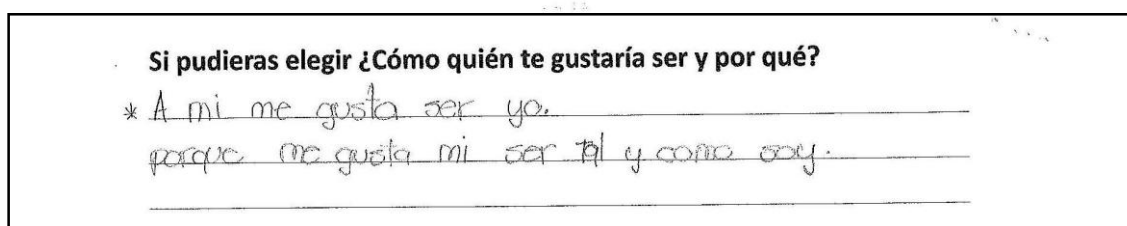 Si pudieras elegir ¿Cómo quién te gustaría ser y por qué?
* A mi me gusta ser yo.
porque me gusta mi ser tal y como soy.